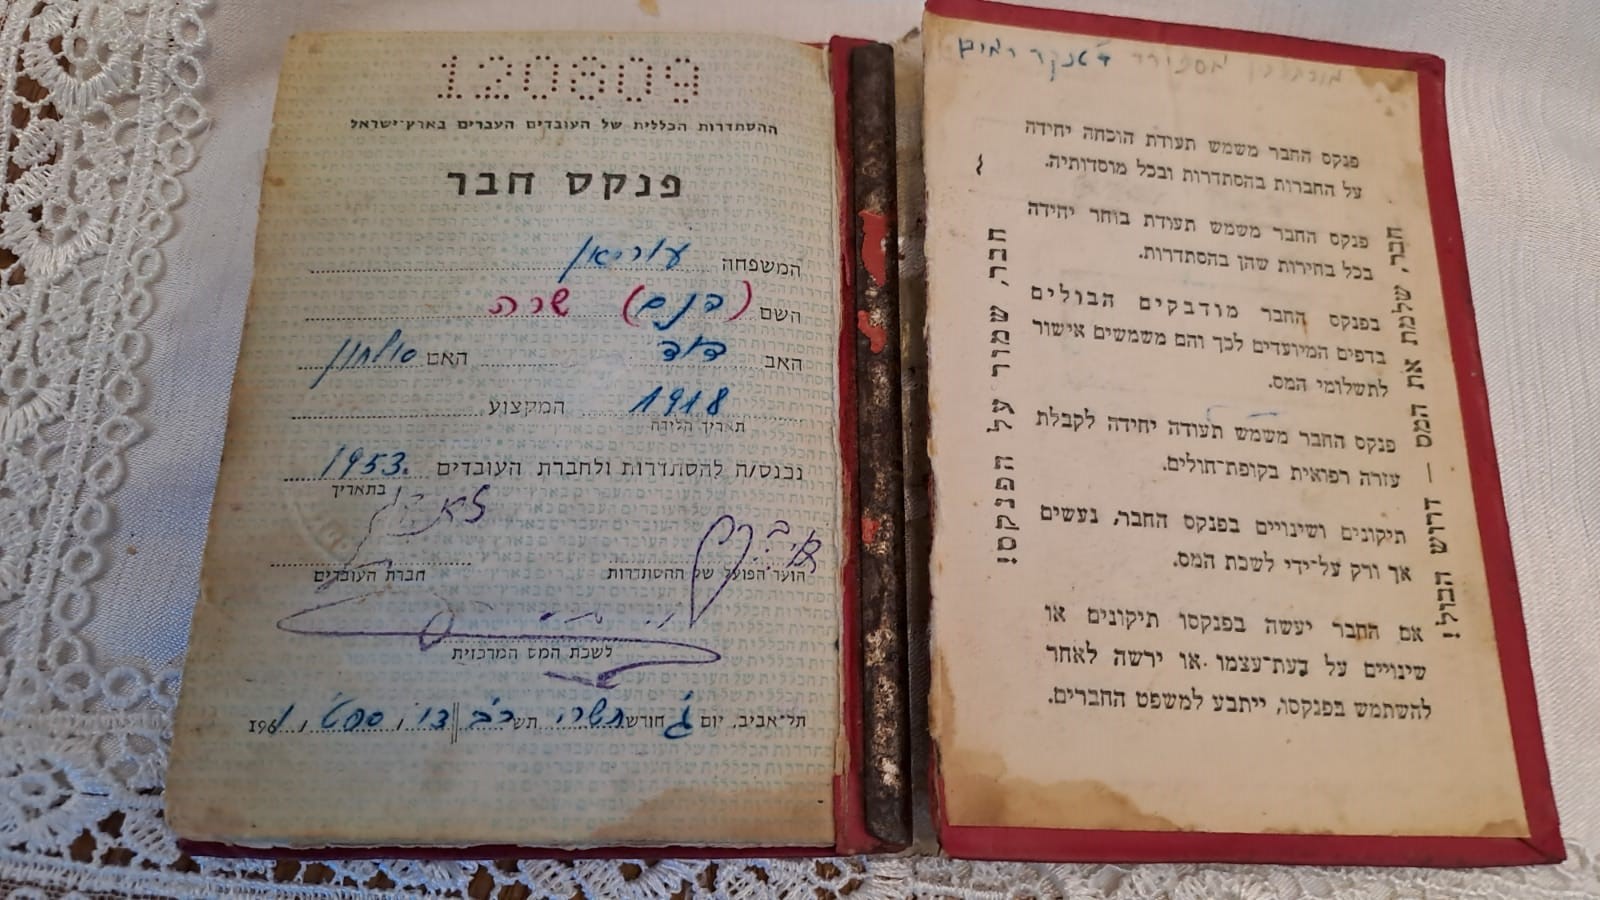 120809
ההסתדרות הכללית של העובדים העברים בארץ־ישראל
פנקס חבר
המשפחה
השם שרה
האב דוד האם
1918 המקצוע
תאריך הלידה
נכנס/ה להסתדרות ולחברת העובדים 1953.
בתאריך
הועד הפועל של ההסתדרות חברת העובדים
לשכת המס המרכזית
תל־אביב, יום ג' חודש תשרי תשכ"ב ספט' 1961
פנקס החבר משמש תעודת הוכחה יחידה
על החברות בהסתדרות ובכל מוסדותיה.
פנקס החבר משמש תעודת בוחר יחידה
בכל בחירות שהן בהסתדרות.
בפנקס החבר מודבקים הבולים
בדפים המיועדים לכך והם משמשים אישור
לתשלומי המס.
פנקס החבר משמש תעודה יחידה לקבלת
עזרה רפואית בקופת־חולים.
תיקונים ושינויים בפנקס החבר, נעשים
אך ורק על־ידי לשכת המס.
אם החבר יעשה בפנקסו תיקונים או
שינויים על דעת־עצמו או ירשה לאחר
להשתמש בפנקסו, ייתבע למשפט החברים.
חבר, שלמת את המס — דרוש הבול!
חבר, שמור על הפנקס!